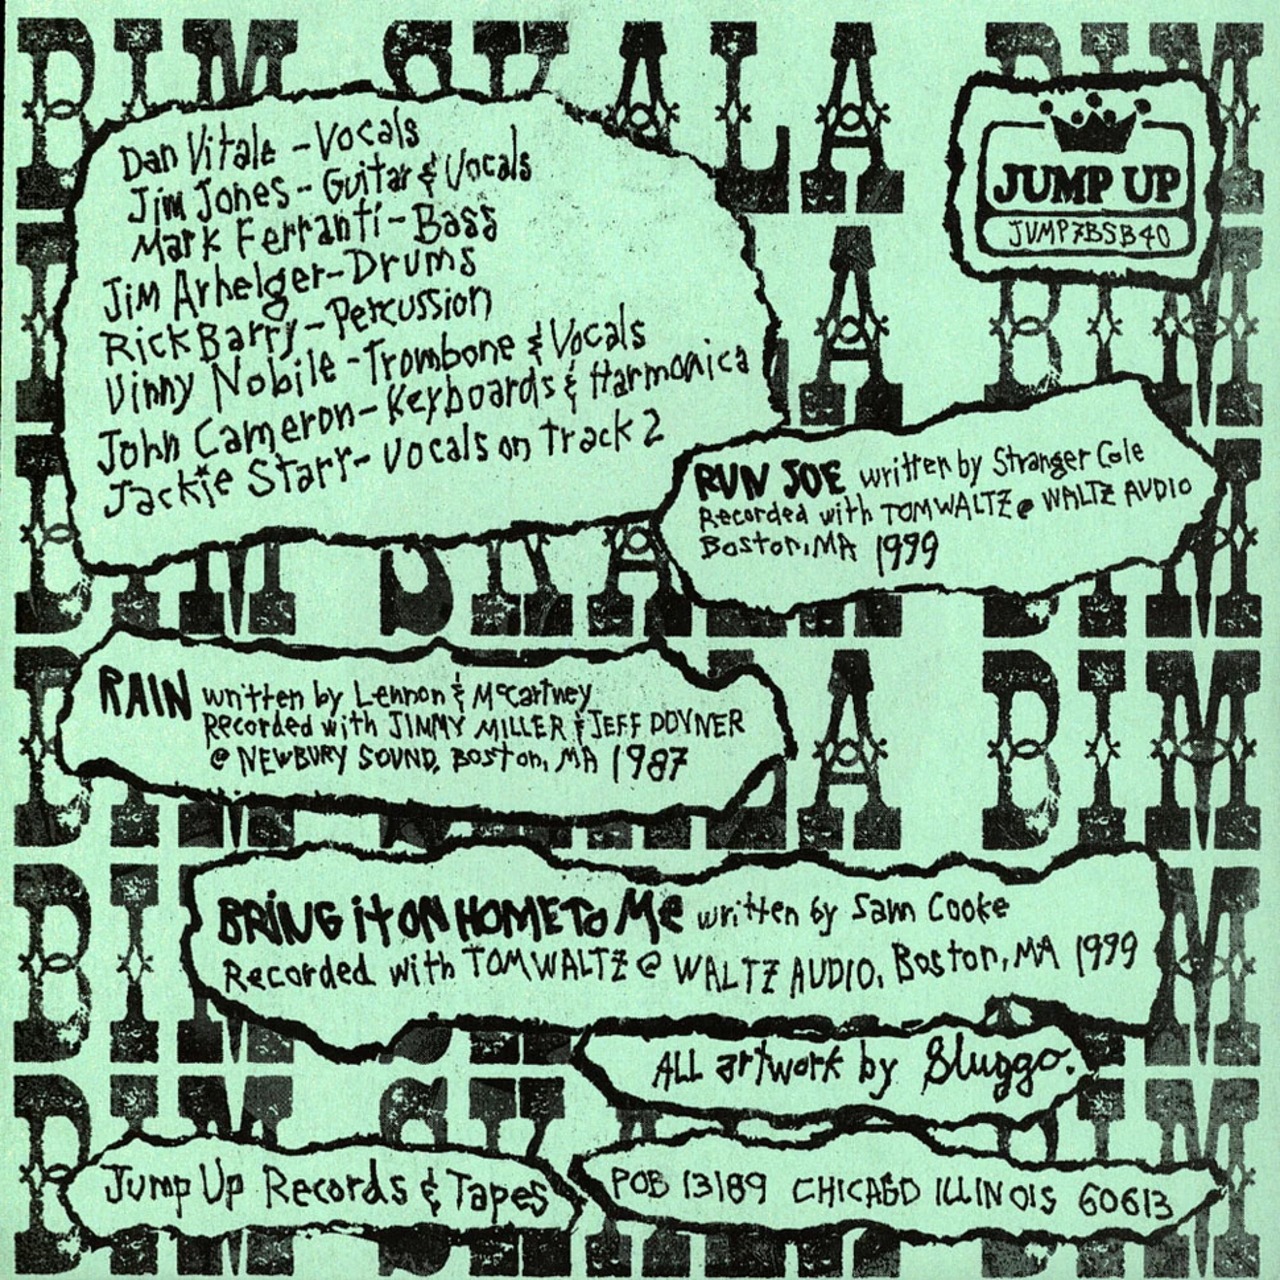 BIM SKALA BIM
JUMP UP
JUMP7BSB40
Dan Vitale - Vocals
Jim Jones - Guitar & Vocals
Mark Ferranti - Bass
Jim Arhelger - Drums
Rick Barry - Percussion
Vinny Nobile - Trombone & Vocals
John Cameron - Keyboards & Harmonica
Jackie Starr - Vocals on track 2
RUN JOE written by Stranger Cole
Recorded with TOM WALTZ @ WALTZ AUDIO
Boston, MA 1999
RAIN written by Lennon & McCartney
Recorded with JIMMY MILLER & JEFF DOVNER
@ NEWBURY SOUND, Boston, MA 1987
BRING it ON HOME To Me written by Sam Cooke
Recorded with TOM WALTZ @ WALTZ AUDIO, Boston, MA 1999
ALL artwork by Sluggo.
Jump Up Records & Tapes
POB 13189 CHICAGO ILLINOIS 60613